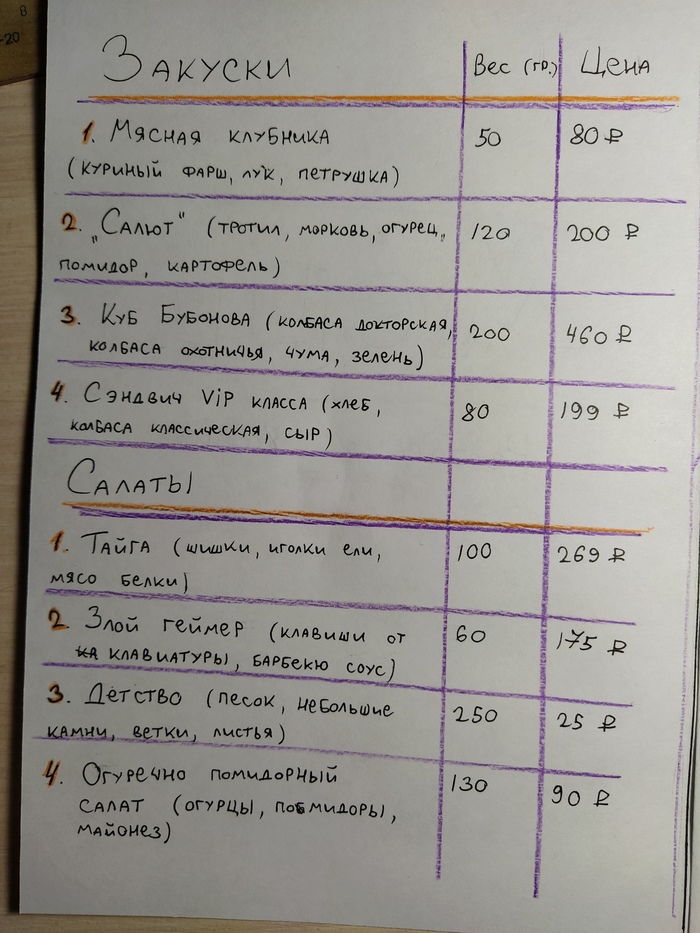 8
-20
Закуски Вес (гр.) Цена
1. Мясная клубника 50 80 ₽
(куриный фарш, лук, петрушка)
2. „Салют" (тротил, морковь, огурец, 120 200 ₽
помидор, картофель)
3. Куб Бубонова (колбаса докторская, 200 460 ₽
колбаса охотничья, чума, зелень)
4. Сэндвич VIP класса (хлеб, 80 199 ₽
колбаса классическая, сыр)
Салаты
1. Тайга (шишки, иголки ели, 100 269 ₽
мясо белки)
2 Злой геймер (клавиши от 60 175 ₽
клавиатуры, барбекю соус)
3. Детство (песок, небольшие 250 25 ₽
камни, ветки, листья)
4. Огуречно помидорный 130 90 ₽
салат (огурцы, помидоры,
майонез)